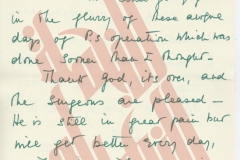 in the flurry of these awful
days of P.S. operation which was
done sooner than I thought-
Thank God, its over, and
the surgeons are pleased –
He is still in great pain but
will get better every day,